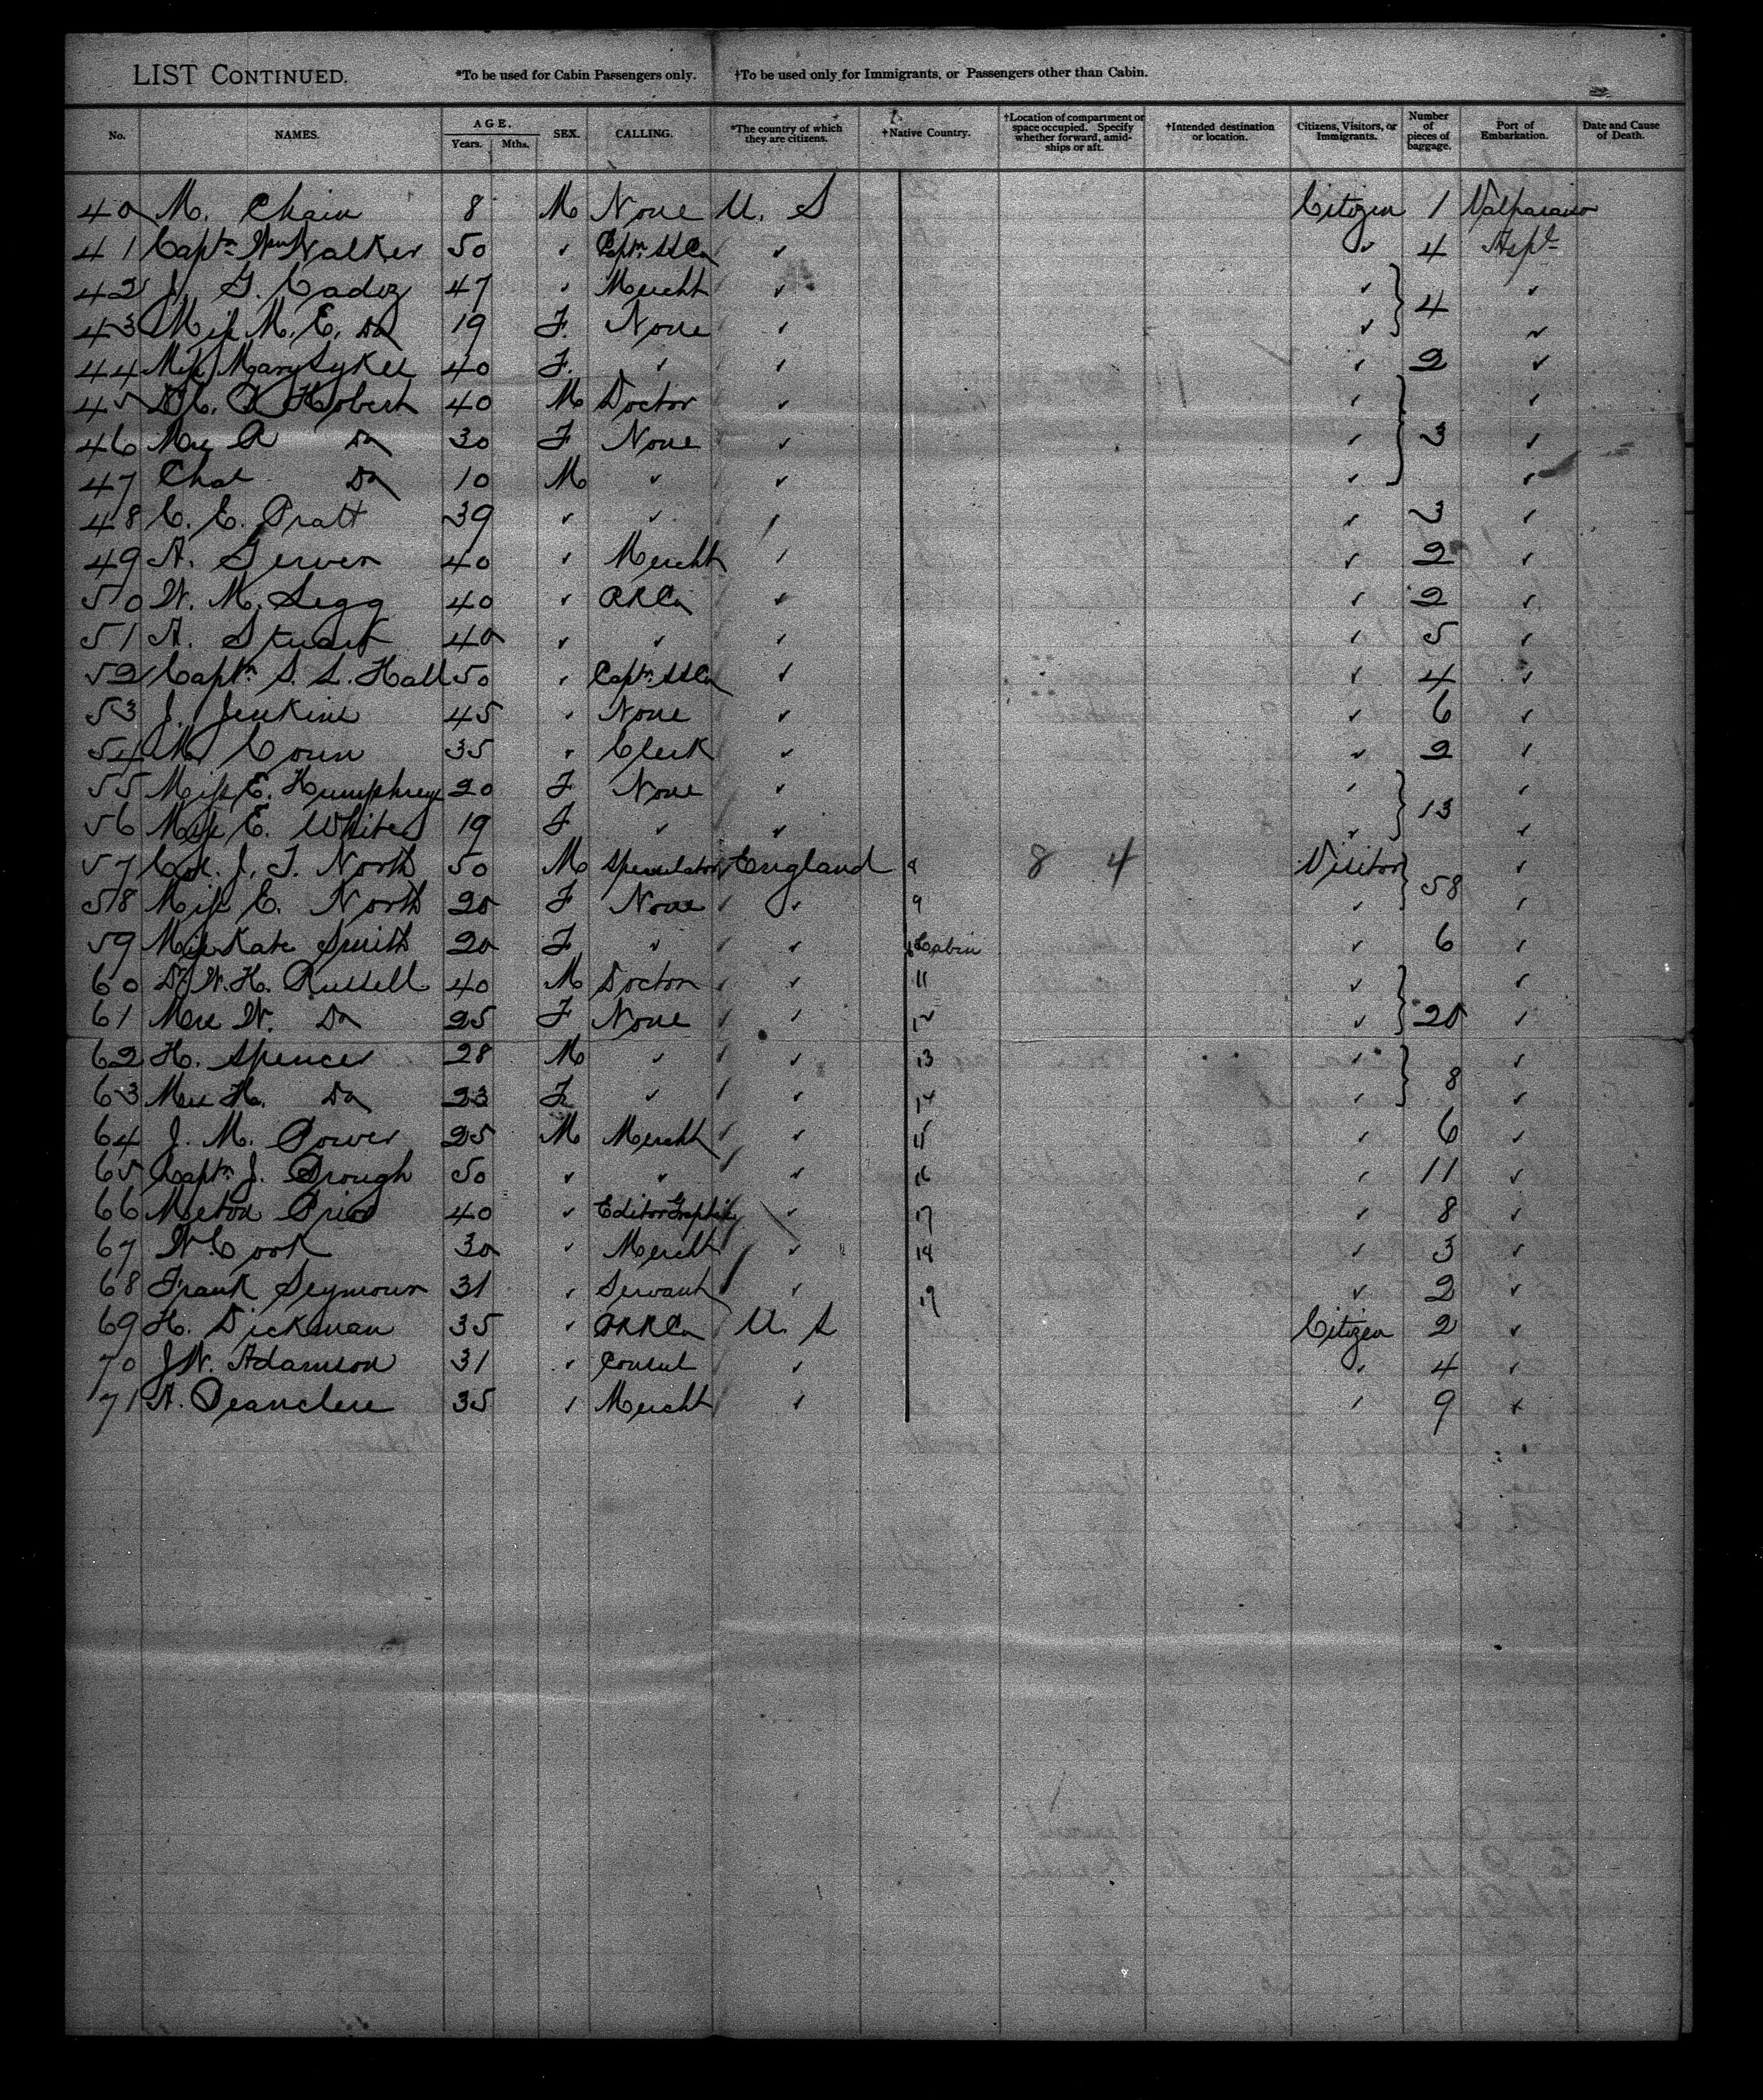 LIST CONTINUED. *To be used for Cabin Passengers only. †To be used only for Immigrants, or Passengers other than Cabin.
No. NAMES. AGE. Years. Mths. SEX. CALLING. *The country of which they are citizens. †Native Country. †Location of compartment or space occupied. Specify whether forward, amidships or aft. †Intended destination or location. Citizens, Visitors, or Immigrants. Number of pieces of baggage. Port of Embarkation. Date and Cause of Death.
40 M. Chain 8 M None U. S Citizen 1 Valparaiso
41 Captn Wm Walker 50 ✓ Captn SSCo ✓ ✓ 4 Aspl
42 J. G. Cadiz 47 ✓ Mercht ✓ ✓ 4 ✓
43 Miss M. E. Do 19 F. None ✓ ✓ ✓
44 Miss Mary Sykes 40 F. ✓ ✓ ✓ 2 ✓
45 40 M Doctor ✓ ✓ ✓
46 Mrs A Do 30 F None ✓ ✓ 3 ✓
47 Chas Do 10 M ✓ ✓ ✓ ✓
48 C. E. Pratt 39 ✓ ✓ ✓ ✓ 3 ✓
49 A. Gerwer 40 ✓ Mercht ✓ ✓ 2 ✓
50 W. M. Segg 40 ✓ RRCo ✓ ✓ 2 ✓
51 A. Stuart 40 ✓ ✓ ✓ ✓ 5 ✓
52 Captn S. L. Hall 50 ✓ Captn SSCo ✓ ✓ 4 ✓
53 J. Jenkins 45 ✓ None ✓ ✓ 6 ✓
54 M Conn 35 ✓ Clerk ✓ ✓ 2 ✓
55 Miss E. Humphreys 20 F None ✓ ✓ 13 ✓
56 Miss E. White 19 F ✓ ✓ ✓ ✓
57 Col. J. T. North 50 M Speculator England 8 8 4 Visitor 58 ✓
58 Miss E. North 20 F None ✓ 9 ✓ ✓
59 Miss Kate Smith 20 F ✓ ✓ Cabin ✓ 6 ✓
60 Dr W. H. Russell 40 M Doctor ✓ 11 ✓ ✓
61 Mrs W. Do 25 F None ✓ 12 ✓ 20 ✓
62 H. Spencer 28 M ✓ ✓ 13 ✓ 8 ✓
63 Mrs H. Do 23 F ✓ ✓ 14 ✓ ✓
64 J. M. Power 25 M Mercht ✓ 15 ✓ 6 ✓
65 Captn J. Brough 50 ✓ ✓ ✓ 16 ✓ 11 ✓
66 Melton Prior 40 ✓ Editor Graphic ✓ 17 ✓ 8 ✓
67 W Cook 30 ✓ Mercht ✓ 18 ✓ 3 ✓
68 Frank Seymour 31 ✓ Servant ✓ 19 ✓ 2 ✓
69 H. Dickman 35 ✓ PRRCo U. S Citizen 2 ✓
70 J W. Adamson 31 ✓ Consul ✓ ✓ 4 ✓
71 35 ✓ Mercht ✓ ✓ 9 ✓